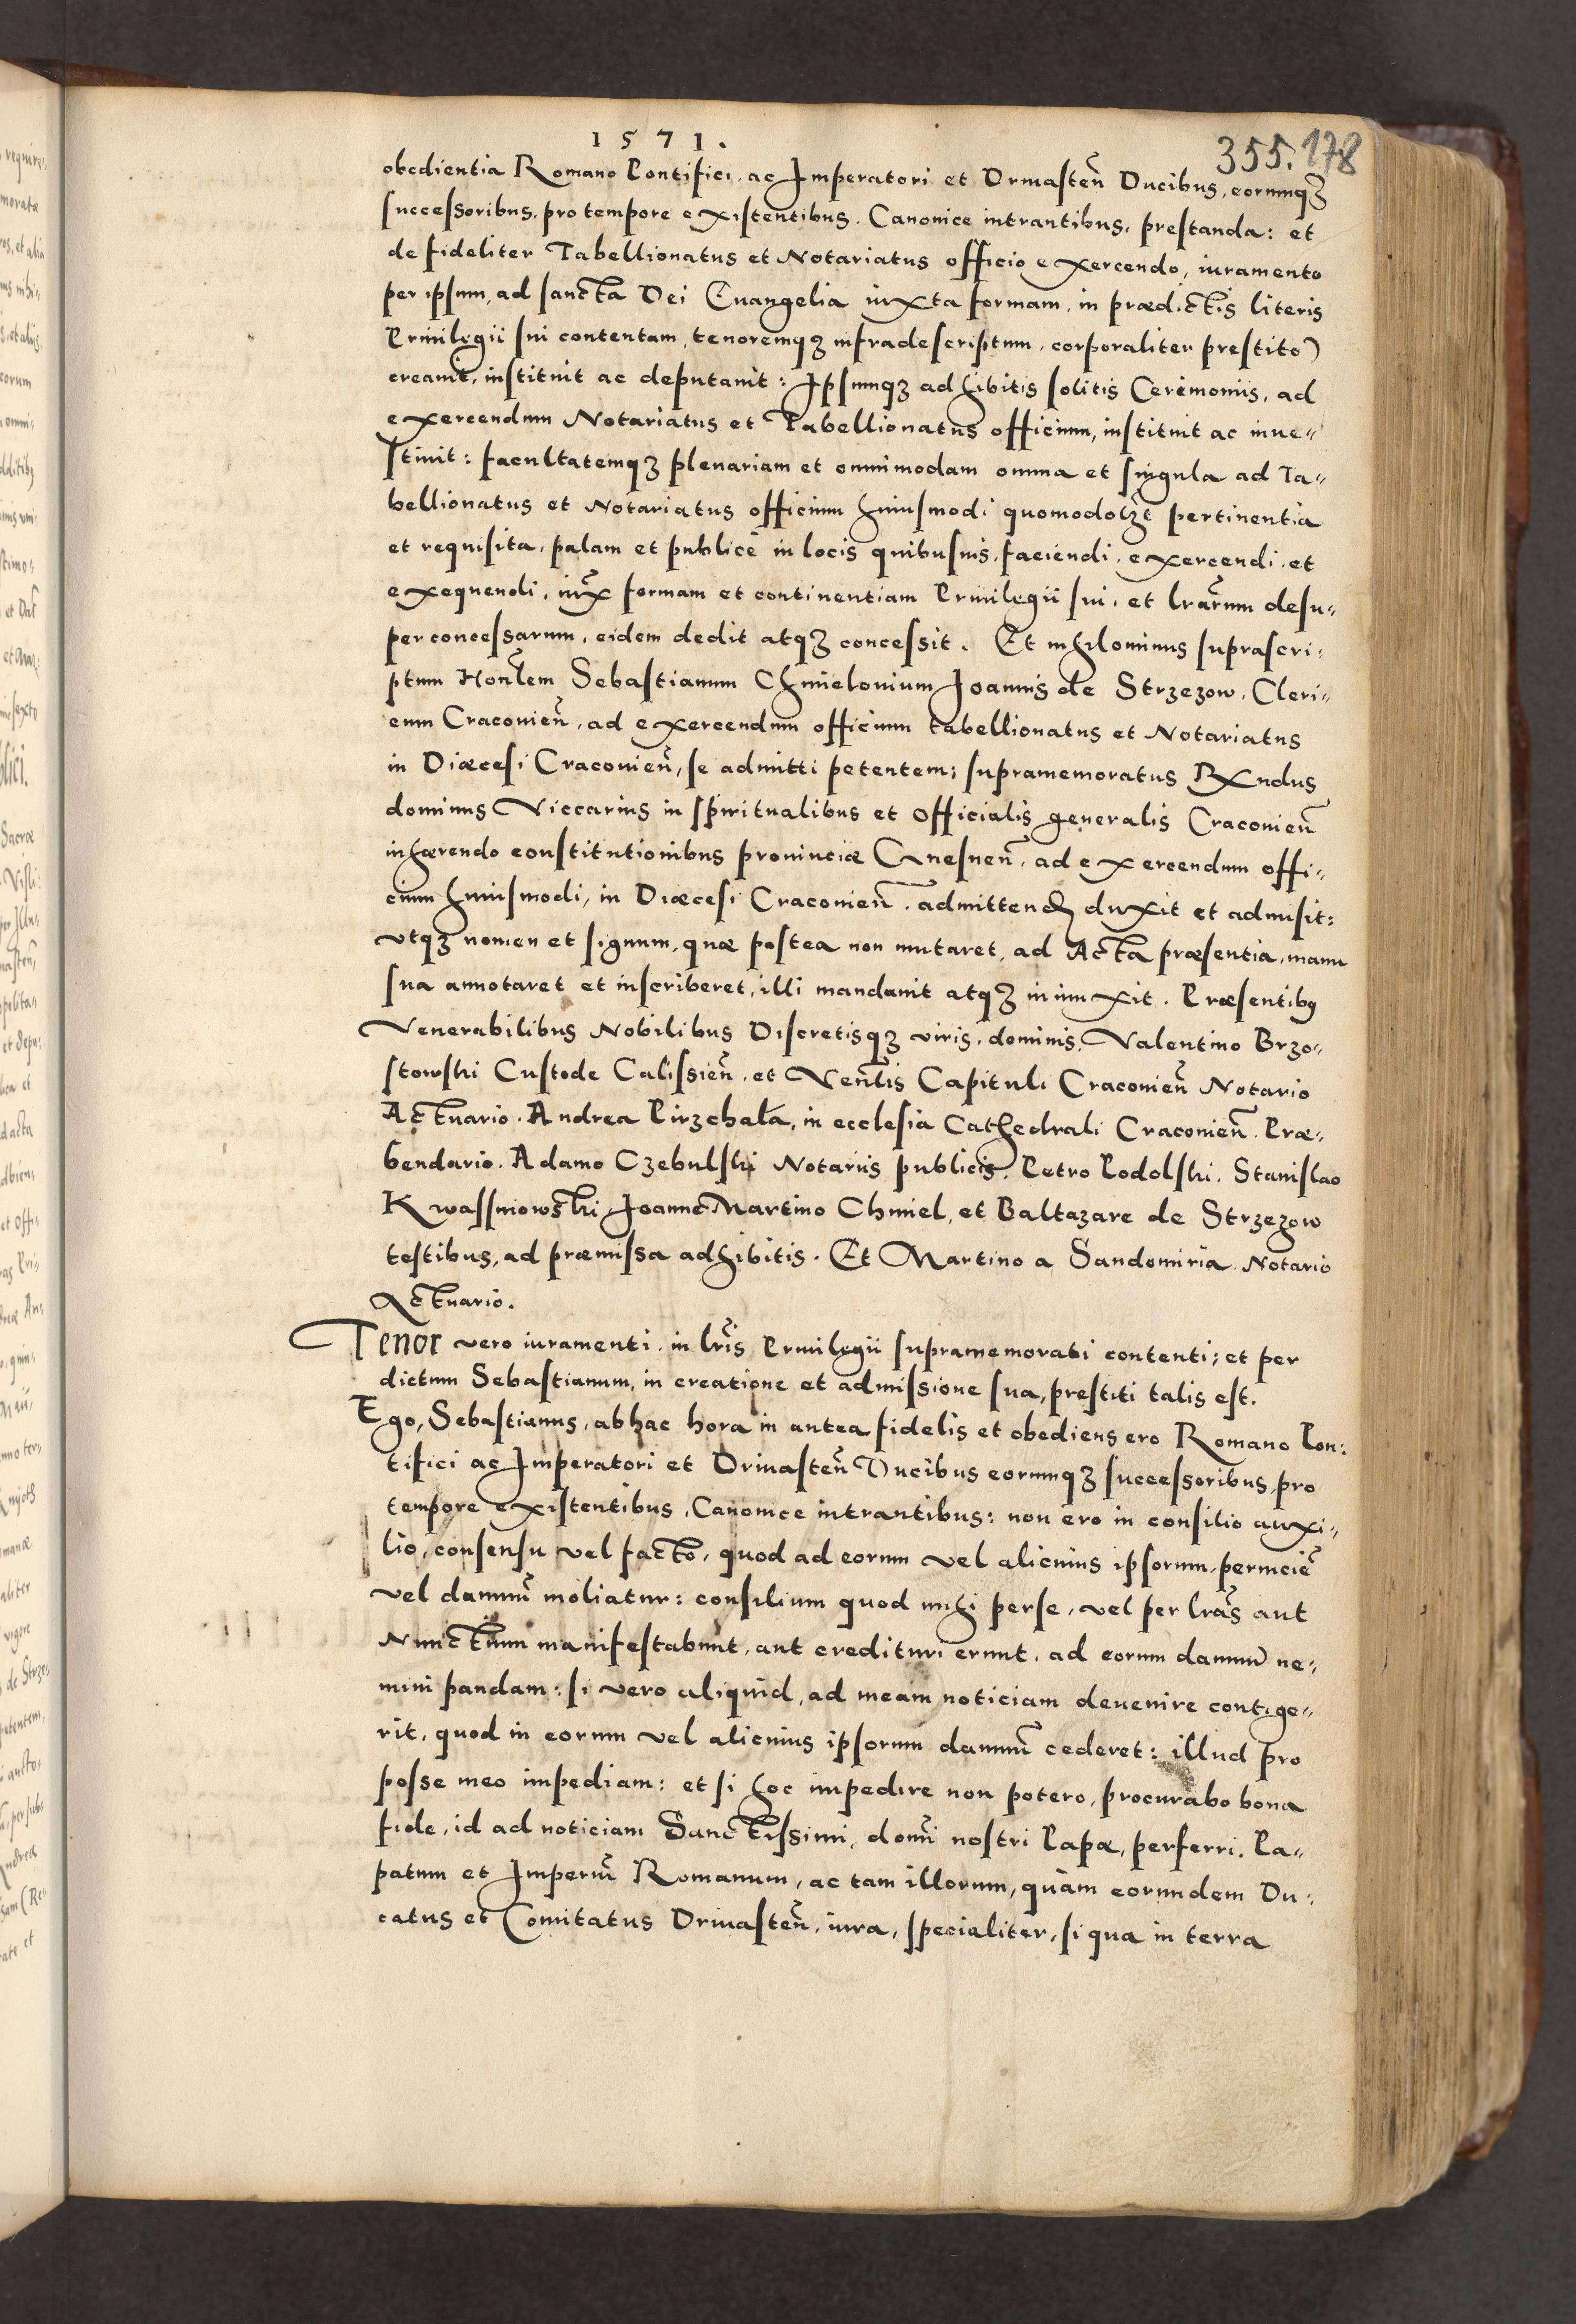 1571.
355. 178
obedientia Romano Pontifici, ac Imperatori et Drivasteñ Ducibus, eorumqꝫ
successoribus, pro tempore existentibus. Canonice intrantibus, prestanda: et
de fideliter Tabellionatus et Notariatus officio exercendo, iuramento
per ipsum, ad sancta Dei Euangelia iuxta formam, in prædictis literis
Priuilegii sui contentam, tenoremqꝫ infradescriptum, corporaliter prestito)
creauit, instituit ac deputauit: Ipsumqꝫ adhibitis solitis Cerèmoniis, ad
exercendum Notariatus et Tabellionatus officium, instituit ac inue„
stiuit: facultatemqꝫ plenariam et omnimodam omnia et singula ad Ta„
bellionatus et Notariatus officium huiusmodi quomodolꝫt pertinentia
et requisita, palam et publicè in locis quibusuis, faciendi, exercendi, et
exequendi, iux̃ formam et continentiam Priuilegii sui, et lrarum desu„
per concessarum, eidem dedit atqꝫ concessit. Et nihilominus suprascri„
ptum Honlem Sebastianum Chmielonium Joannis de Strzezow, Cleri„
cum Cracovieñ, ad exercendum officium tabellionatus et Notariatus
in Diœcesi Craconieñ, se admitti petentem; supramemoratus Rxndus
dominus Viccarius in spiritualibus et Officialis generalis Craconieñ
inhærendo constitutionibus prouinciæ Gnesneñ, ad exercendum offi„
cium huiusmodi, in Diœcesi Craconieñ. admittend duxit et admisit:
vtqꝫ nomen et signum, quæ postea non mutaret, ad Acta præsentia, manu
sua annotaret et inscriberet, illi mandauit atqꝫ iniunxit. Præsentibꝫ
Venerabilibus Nobilibus Discretisqꝫ viris, dominis, Valentino Brzo„
stowski Custode Calissieñ, et Venlis Capituli Craconieñ Notario
Actuario. Andrea Pirzchała, in ecclesia Cathedrali Craconieñ. Præ„
bendario. Adamo Czebulski Notariis publicis. Petro Podolski. Stanislao
Kwassniowski Joanne Martino Chmiel, et Baltazare de Strzezow
testibus, ad præmissa adhibitis. Et Martino a Sandomiria. Notario
Actuario.
Tenor vero iuramenti, in lris Priuilegii supramemorati contenti; et per
dictum Sebastianum, in creatione et admissione sua, prestiti talis est.
Ego, Sebastianus, abhac hora in antea fidelis et obediens ero Romano Pon:
tifici ac Imperatori et Drivasteñ Ducibus eorumqꝫ successoribus, pro
tempore existentibus, Canonice intrantibus: non ero in consilio auxi„
lio, consensu vel facto, quod ad eorum vel alicuius ipsorum, perniciẽ
vel damnũ moliatur: consilium quod mihi perse, vel per lras aut
Nunctium manifestabunt, aut credituri erunt, ad eorum damnũ ne„
mini pandam: si vero aliquid, ad meam noticiam deuenire contige„
rit, quod in eorum vel alicuius ipsorum damnũ cederet: illud pro
posse meo impediam: et si hoc impedire non potero, procurabo bona
fide, id ad noticiam Sanctissimi, domĩ nostri Papæ, perferri. Pa„
patum et Imperiũ Romanum, ac tam illorum, quàm eorundem Du„
catus et Comitatus Drivasteñ, iura, specialiter, si qua in terra